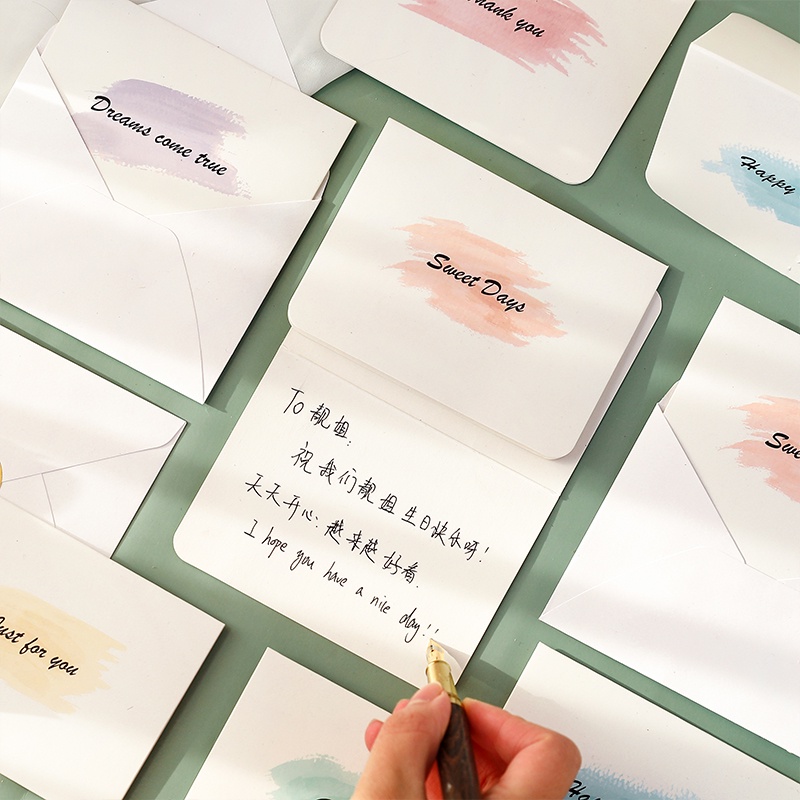 Thank you
Dreams come true
Happy
Sweet Days
Swe
To 靓姐:
祝我们靓姐生日快乐呀!
天天开心:越来越好看.
I hope you have a nice day!!
Just for you
Ha